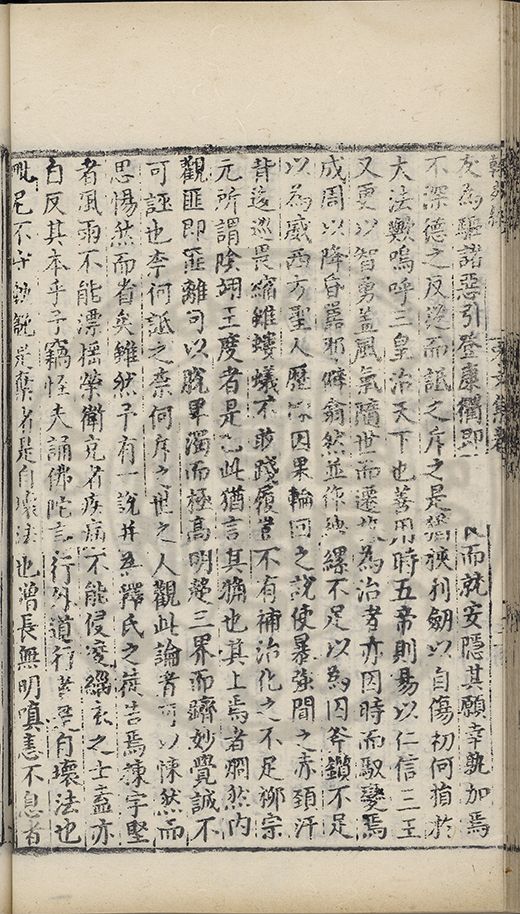 友為驅諸惡引登康衢即而就安隱其願幸孰加焉
不深德之反從而詆之斥之是猶挾利劒以自傷初何損於
大法歟嗚呼三皇治天下也善用時五帝則易以仁信三王
又更以智勇蓋風氣隨世而遷故為治者亦因時而馭變焉
成周以降昏嚚邪僻翕然並作紲縲不足以為囚斧鑕不足
以為威西方聖人歷陳因果輪回之說使暴強聞之赤頸汗
背逡巡畏縮雖螻蟻不敢踐履豈不有補治化之不足柳宗
元所謂陰翊王度者是已此猶言其觕也其上焉者烱然內
觀匪即匪離可以脫卑濁而極高明超三界而躋妙覺誠不
可誣也柰何詆之柰何斥之世之人觀此論者可以悚然而
思惕然而省矣雖然予有一說并為釋氏之徒告焉棟宇堅
者風雨不能漂搖榮衛充者疾病不能侵凌緇衣之士盍亦
自反其本乎予竊怪夫誦佛陀言行外道行者是自壞法也
毗尼不守軌範是棄者是自壞法也增長無明嗔恚不息者